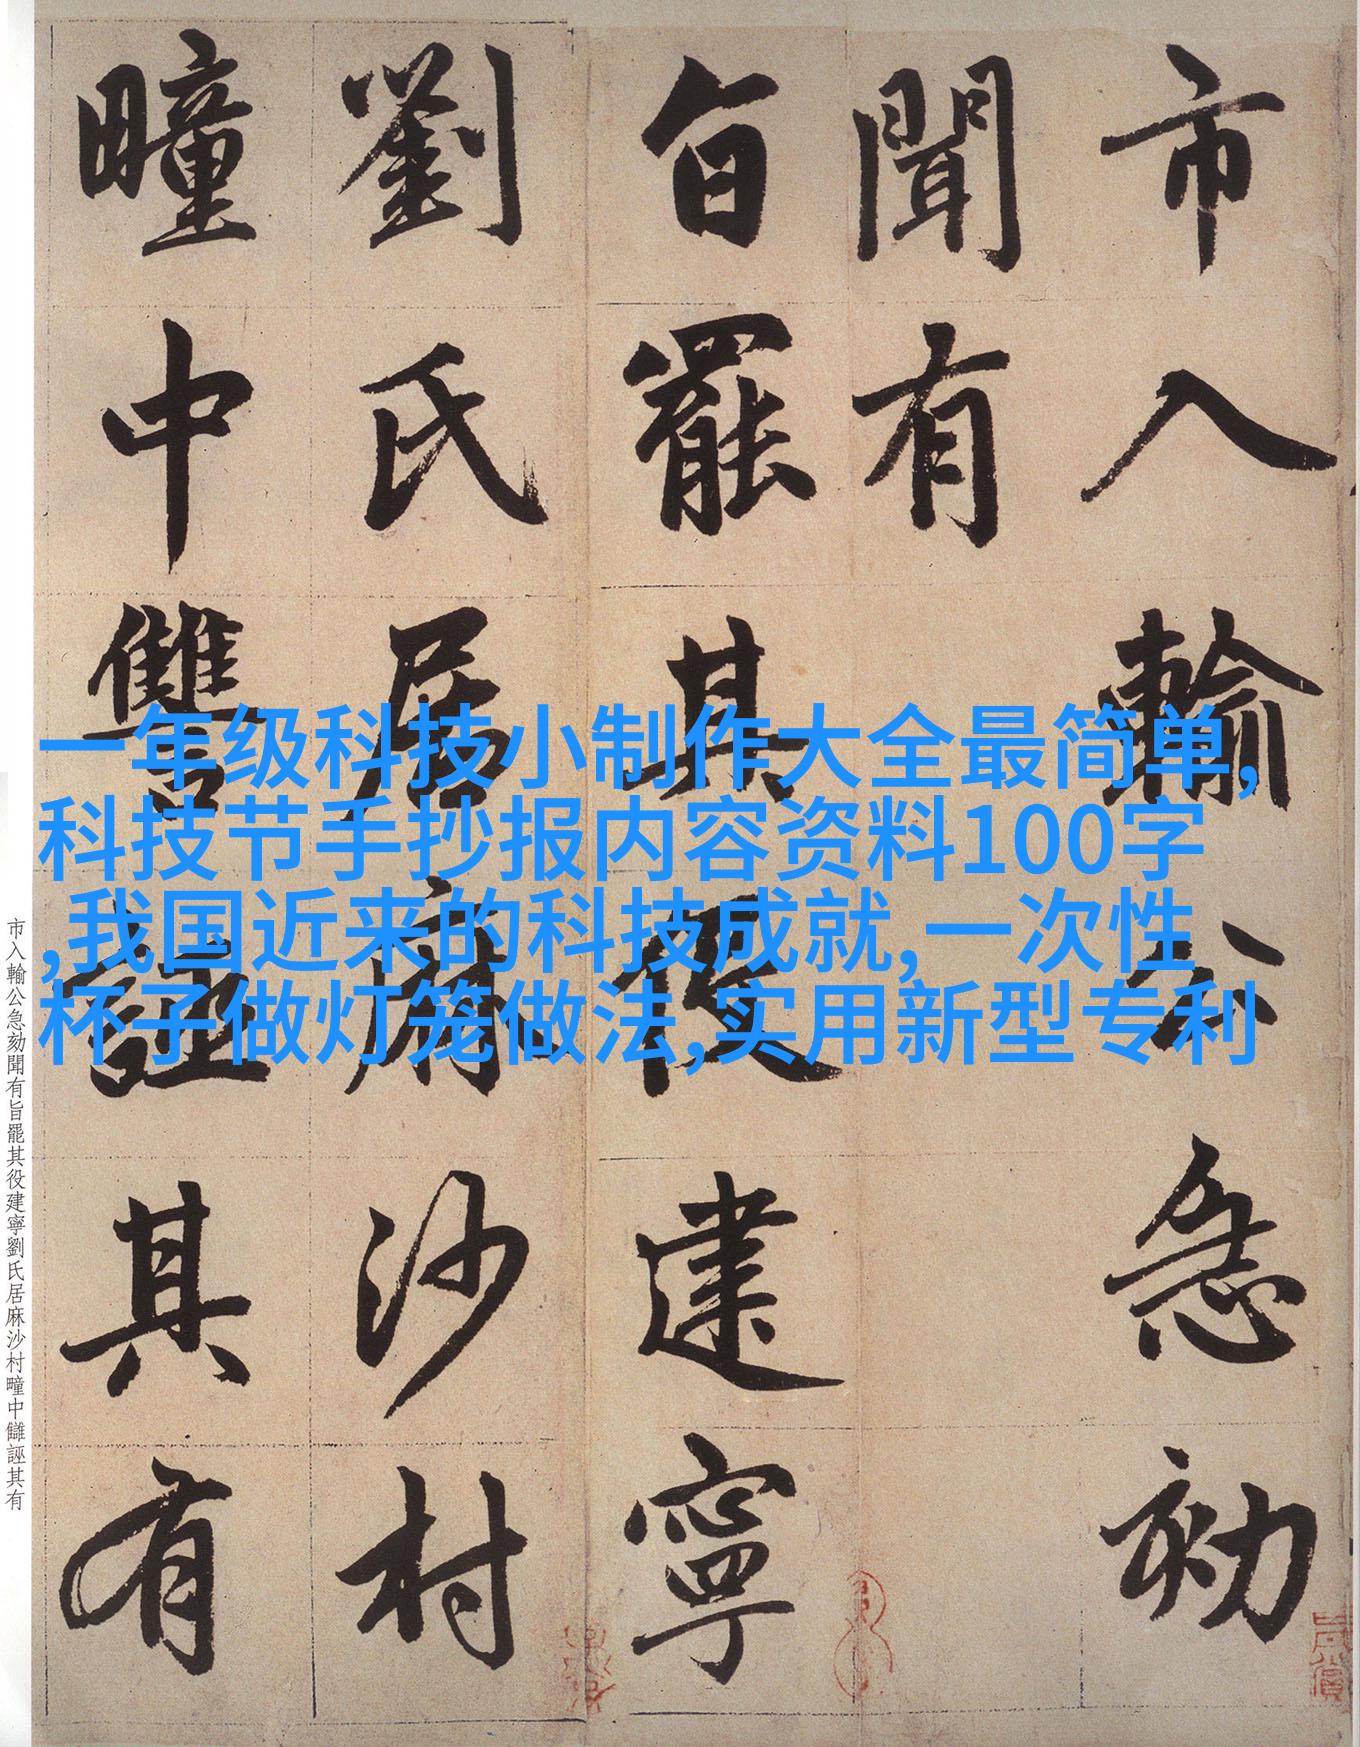 市入輸公急劾
聞有
旨罷其役建寧
劉氏居麻沙村
疃中讐誣其有
一年级科技小制作大全最简单,
科技节手抄报内容资料100字
,我国近来的科技成就,一次性
杯子做灯笼做法,实用新型专利
市入輸公急劾聞有旨罷其役建寧劉氏居麻沙村疃中讎誣其有